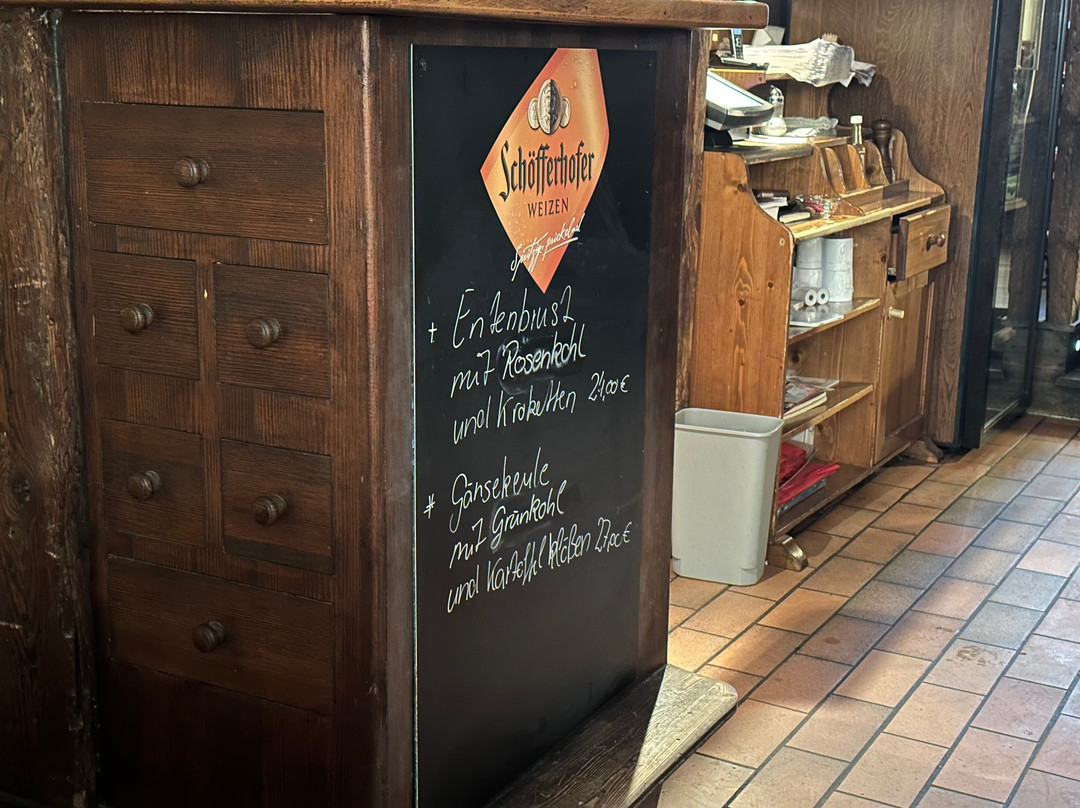 Schöfferhofer
WEIZEN
+ Entenbrust
mit Rosenkohl
und Kroketten 24,00€
* Gänsekeule
mit Grünkohl
und Kartoffelklößen 27,00€